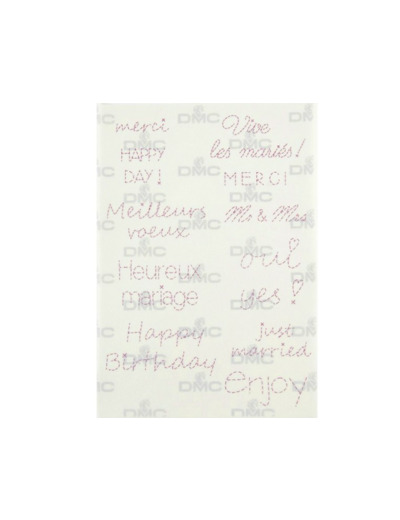 merci
HAPPY
DAY!
Meilleurs
voeux
Heureux
mariage
Happy
Birthday
Vive
les mariés!
MERCI
Mr & Mrs
oui
yes!
just
married
enjoy
DMC